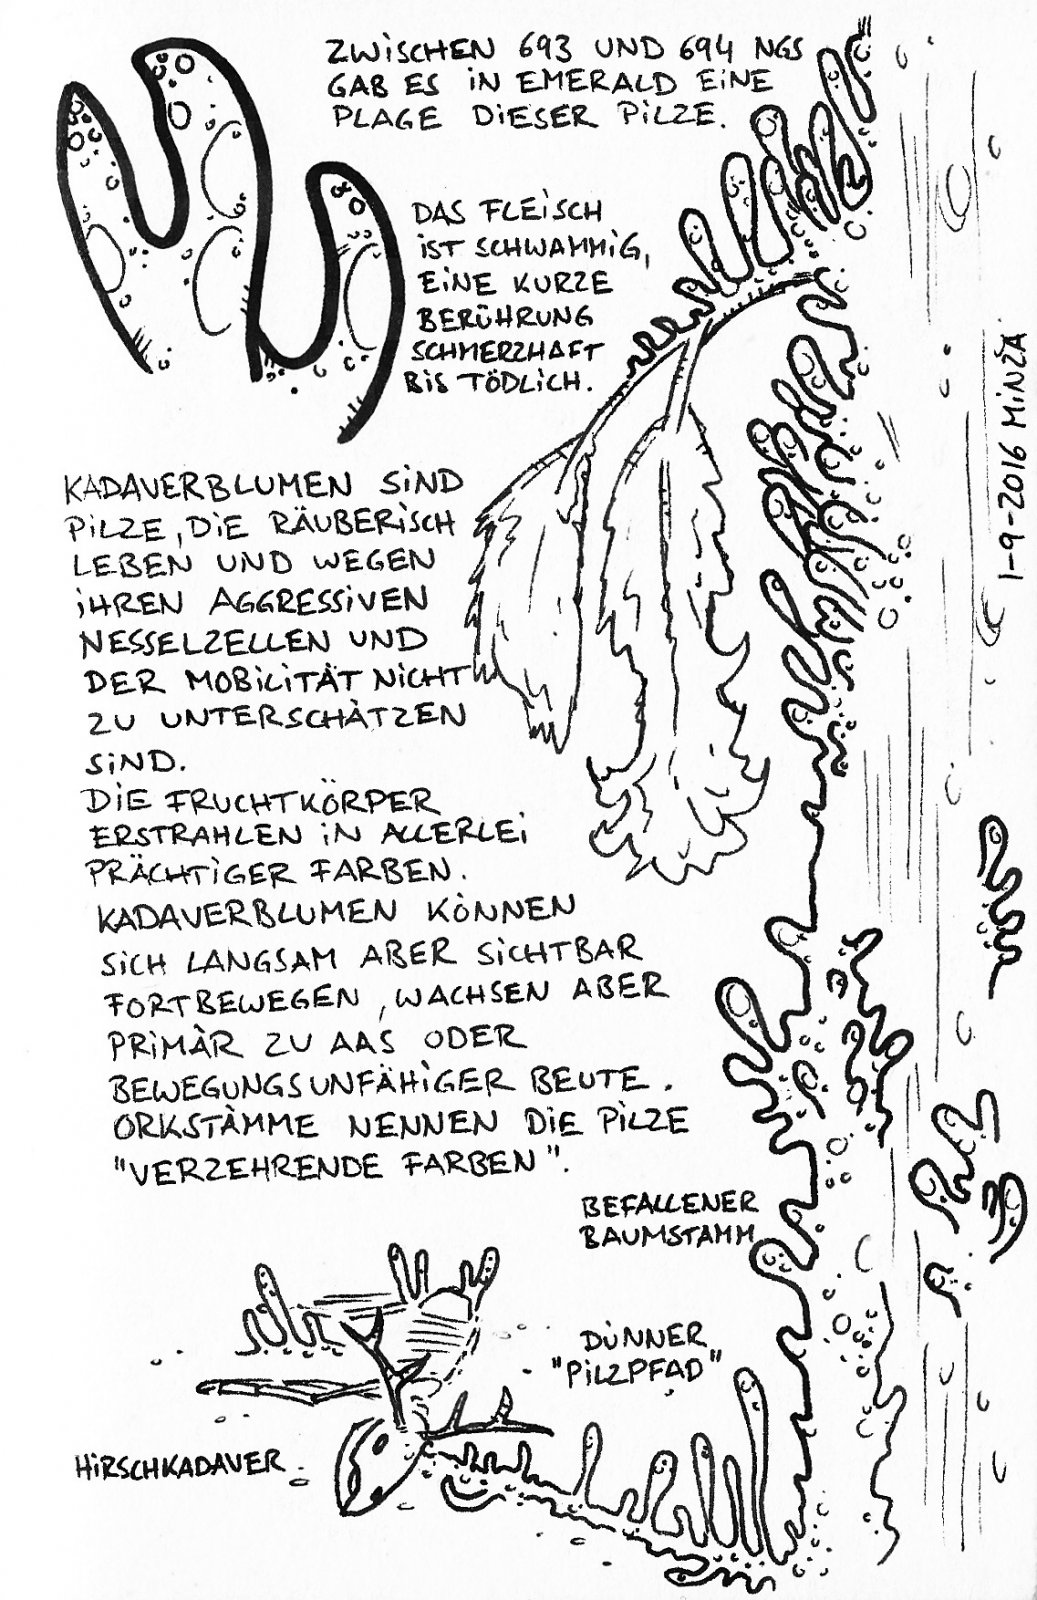 ZWISCHEN 693 UND 694 NGS
GAB ES IN EMERALD EINE
PLAGE DIESER PILZE.
DAS FLEISCH
IST SCHWAMMIG,
EINE KURZE
BERÜHRUNG
SCHMERZHAFT
BIS TÖDLICH.
KADAVERBLUMEN SIND
PILZE, DIE RÄUBERISCH
LEBEN UND WEGEN
IHREN AGGRESSIVEN
NESSELZELLEN UND
DER MOBILITÄT NICHT
ZU UNTERSCHÄTZEN
SIND.
DIE FRUCHTKÖRPER
ERSTRAHLEN IN ALLERLEI
PRÄCHTIGER FARBEN.
KADAVERBLUMEN KÖNNEN
SICH LANGSAM ABER SICHTBAR
FORTBEWEGEN, WACHSEN ABER
PRIMÄR ZU AAS ODER
BEWEGUNGSUNFÄHIGER BEUTE.
ORKSTÄMME NENNEN DIE PILZE
"VERZEHRENDE FARBEN".
BEFALLENER
BAUMSTAMM
DÜNNER
"PILZPFAD"
HIRSCHKADAVER
1-9-2016 MINZA